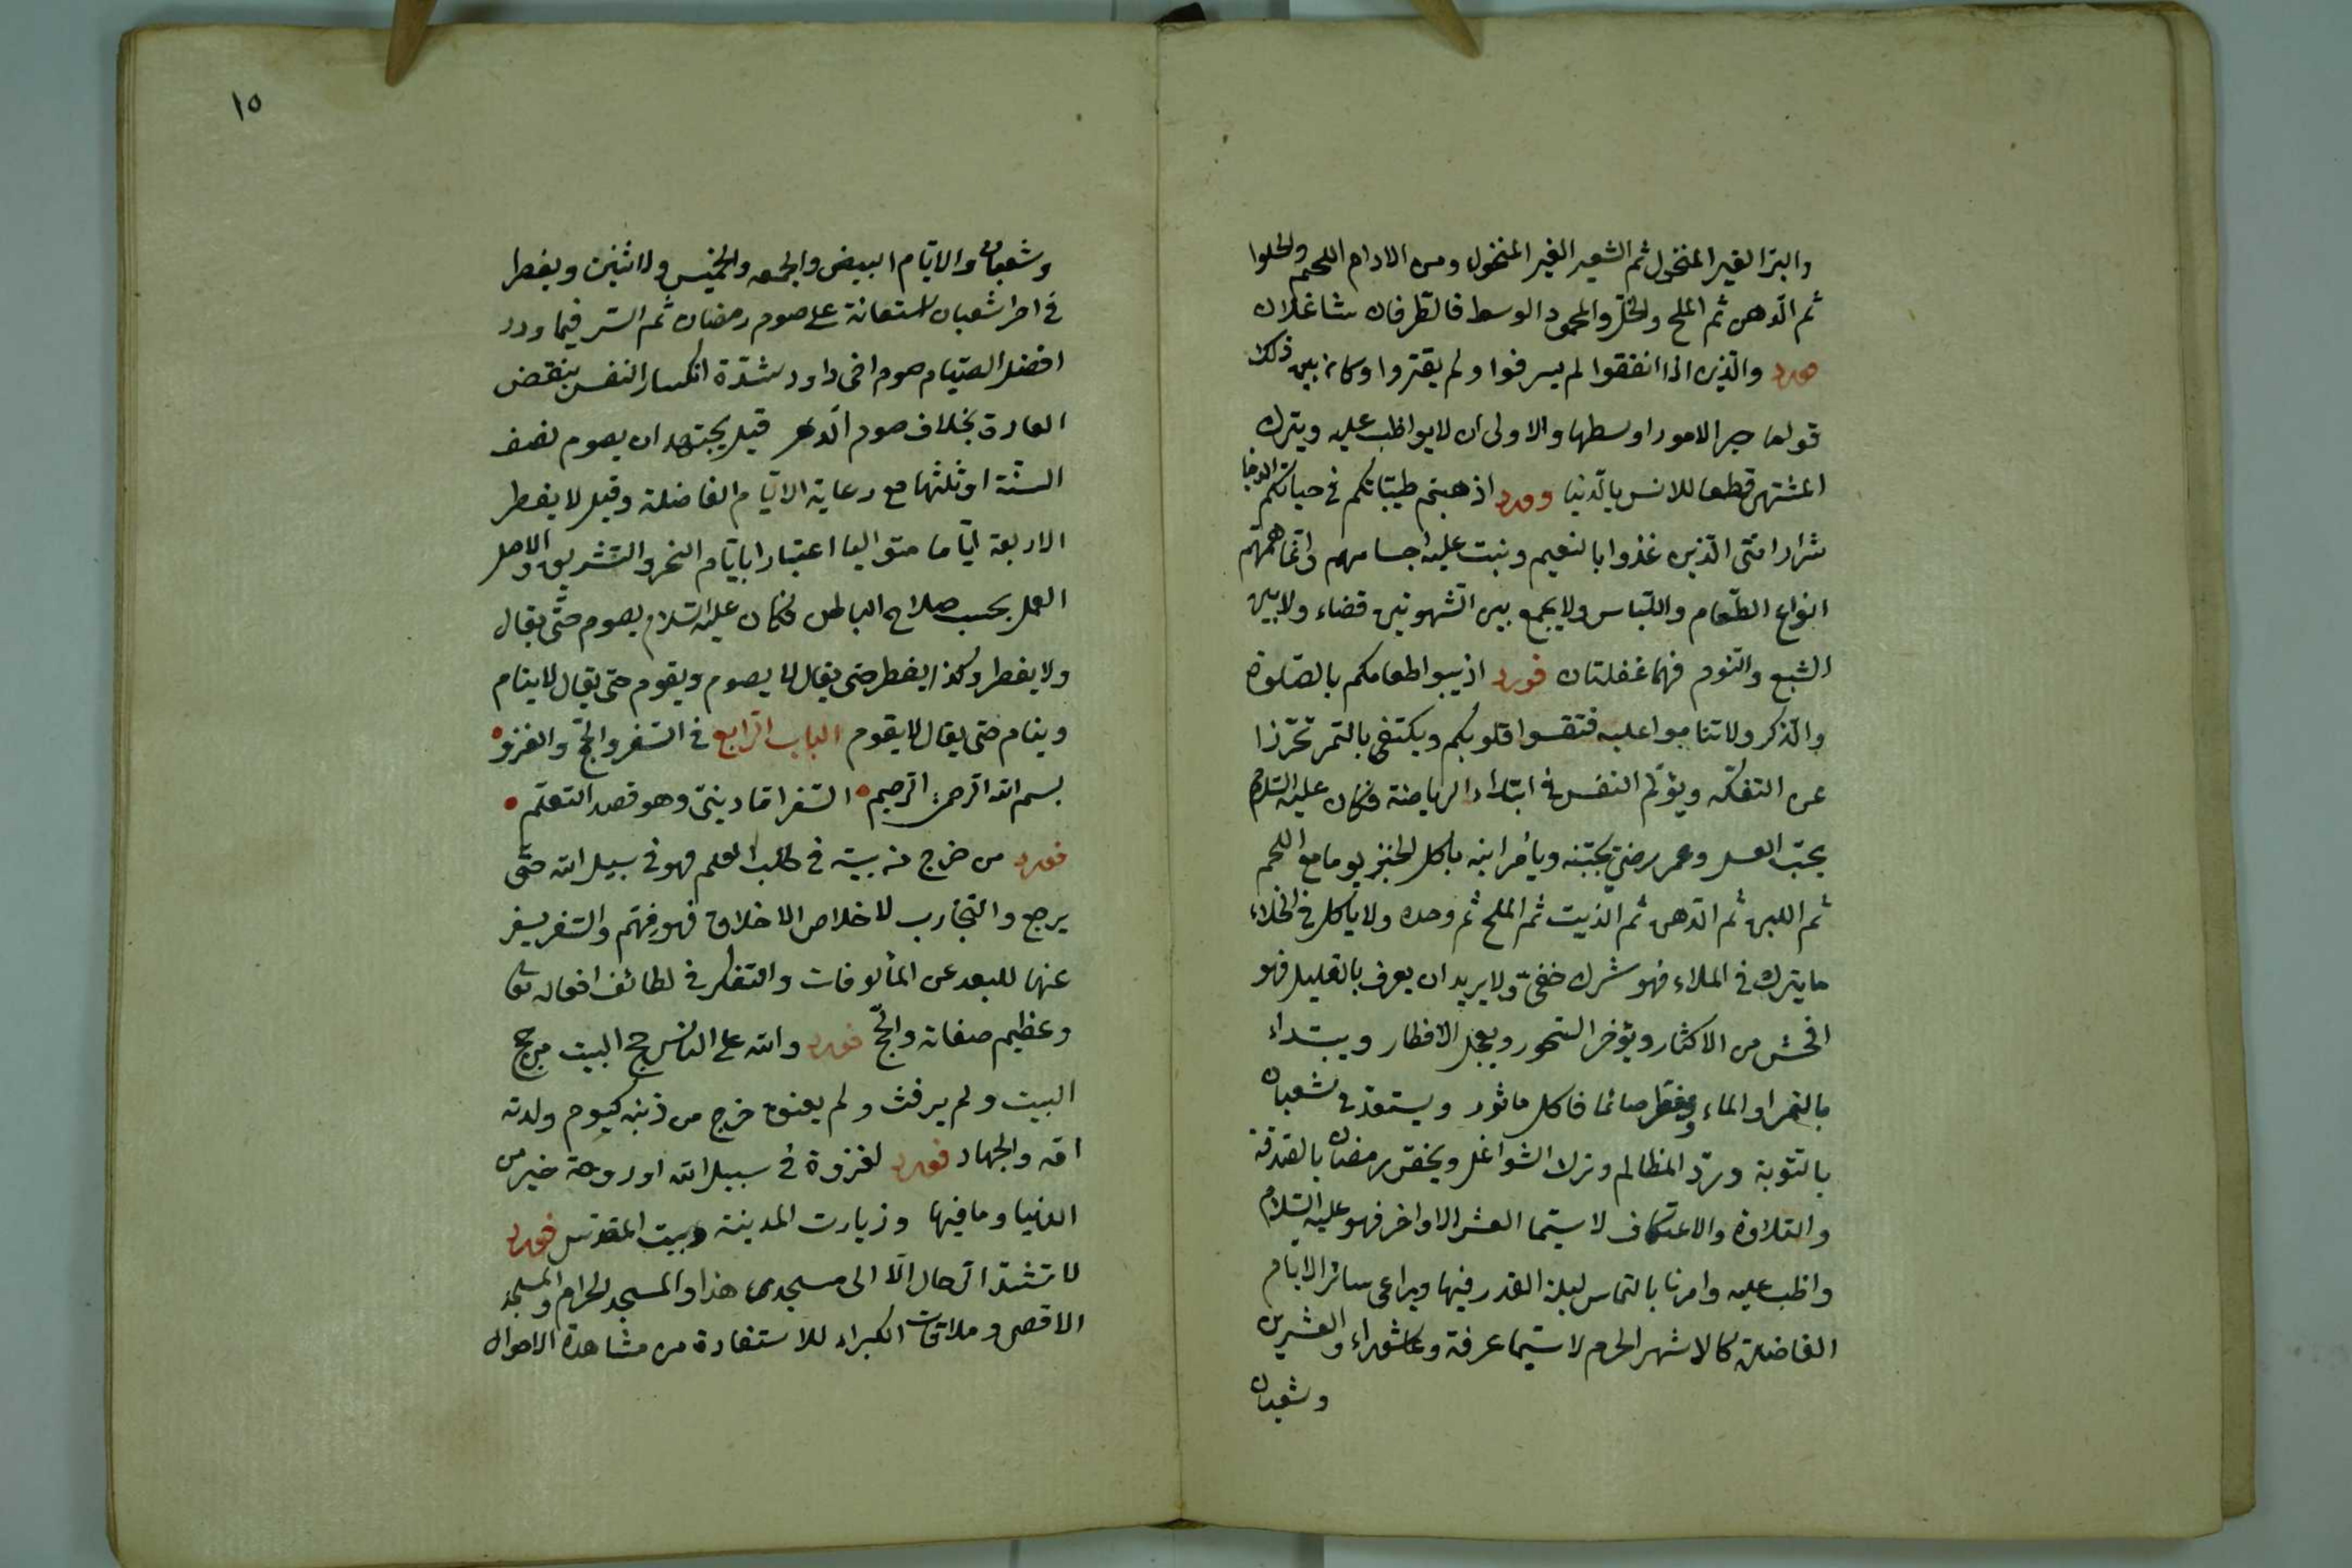 والبرّ الغير المنخول ثم الشعير الغير المنخول ومن الادام اللحم والحلوا
ثم الدّهن ثم الملح والخلّ والمحمود الوسط فالطّرفان شاغلان
والّذين اذا انفقوا لم يسرفوا ولم يقتروا وكان بين ذلك
قواما خير الامور اوسطها والاولى ان لا يواظب عليه ويترك
المشتهى قطعا للانس بالدّنيا وورد اذهبتم طيّباتكم في حياتكم الدنيا
شرار امّتى الّذين غذوا بالنعيم ونبت عليه اجسامهم وانّما همّتهم
انواع الطّعام واللّباس ولا يجمع بين الشّهوتين قضاء ولا بين
الشبع والنّوم فهما غفلتان فورد اذيبوا طعامكم بالصّلوة
والذّكر ولا تناموا عليه فتقسوا قلوبكم ويكتفى بالتمر تحرّزا
عن التفكّه ويؤلّم النفس في ابتداء الرياضة فكان عليه السّلام
يحبّ العسل وعمر رضي يجتنبه ويأمر ابنه باكل الخبز يوما مع اللحم
ثم اللبن ثم الدّهن ثم الزيت ثم الملح ثم وحده ولا يأكل في الخلاء
ما يترك في الملاء فهو شرك خفيّ ولا يريد ان يعرف بالتقليل فهو
افحش من الاكثار ويؤخر السّحور ويعجل الافطار ويبتداء
بالتمر او الماء ويفطّر صائما فاكل ماثور ويستعدّ في شعبان
بالتّوبة وردّ المظالم وترك الشواغل ويختصّ رمضان بالصّدقة
والتلاوة والاعتكاف لا سيّما العشر الاواخر فهو عليه السّلام
واظب عليه وامرنا بالتماس ليلة القدر فيها ويراعى سائر الايام
الفاضلة كالاشهر الحرم لا سيّما عرفة وعاشوراء والعشرين
وشعبان
١٥
وشعبان والايّام البيض والجمعه والخميس والاثنين ويفطر
في اخر شعبان استعانة على صوم رمضان ثم السّر فيما ورد
افضل الصّيام صوم اخى داود شدّة انكسار النفس بنقض
العادة بخلاف صوم الدّهر قيل يجتهد ان يصوم نصف
السّنة او ثلثها مع رعاية الايّام الفاضلة وقيل لا يفطر
الاربعة ايّاما متواليا اعتبارا بايّام النحر والتّشريق والاصل
العمل بحسب صلاح الباطن فكان عليه السّلام يصوم حتّى يقال
ولا يفطر وكذا يفطر حتى يقال لا يصوم ويقوم حتى يقال لا ينام
وينام حتى يقال لا يقوم الباب الرّابع في السّفر والحجّ والغزو
بسم الله الرّحمن الرّحيم السّفر امّا دينىّ وهو قصد التعلّم
فورد من خرج من بيته في طلب العلم فهو في سبيل الله حتّى
يرجع والتجارب لاخلاص الاخلاق فهو مهمّ والسّفر يسفر
عنها للبعد عن المألوفات والتفكر في لطائف افعاله تعا
وعظيم صفاته والحجّ فورد ولله على الناس حج البيت من حج
البيت ولم يرفث ولم يفسق خرج من ذنبه كيوم ولدته
امّه والجهاد فورد لغزوة في سبيل الله او روحة خير من
الدنيا وما فيها وزيارت المدينة وبيت المقدّس فورد
لا تشدّ الرّحال الّا الى مسجدى هذا والمسجد الحرام والمسجد
الاقصى وملاقات الكبراء للاستفادة من مشاهدة الاحوال